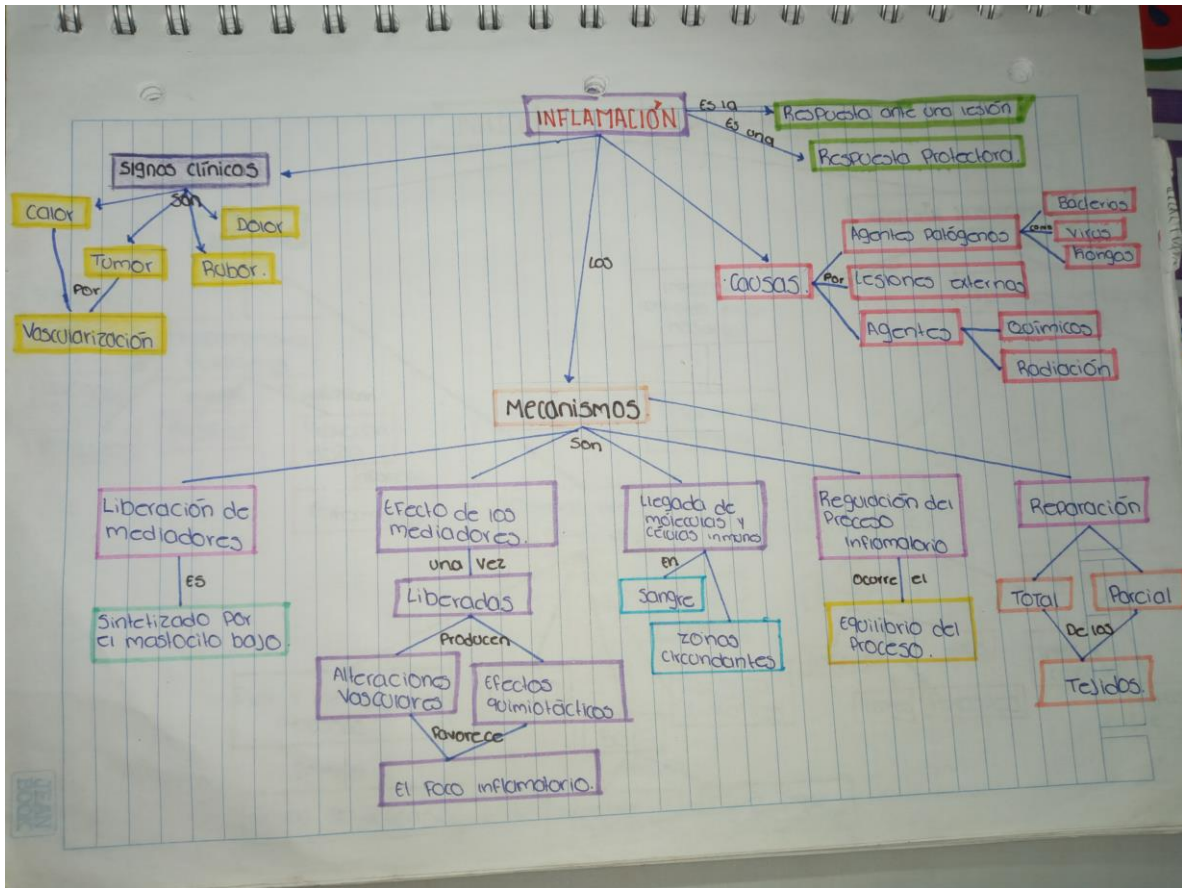 INFLAMACIÓN
Es la
Respuesta ante una lesión
Es una
Respuesta Protectora.
Signos clínicos
son
Calor
Dolor
Tumor
Rubor.
Por
Vascularización
Los
Causas.
Por
Agentes Patógenos
como
Bacterias
Virus
Hongos
Lesiones externas
Agentes
Químicos
Radiación
Mecanismos
Son
Liberación de
mediadores
ES
Sintetizado por
el mastocito bajo.
Efecto de los
mediadores.
una vez
Liberadas
Producen
Alteraciones
Vasculares
Efectos
quimiotácticos
Favorece
El Foco inflamatorio.
Llegada de
móleculas y
células inmuno
en
Sangre
zonas
circundantes
Regulación del
Proceso
inflamatorio
ocurre el
Equilibrio del
Proceso.
Reparación
Total
Parcial
De los
Tejidos.